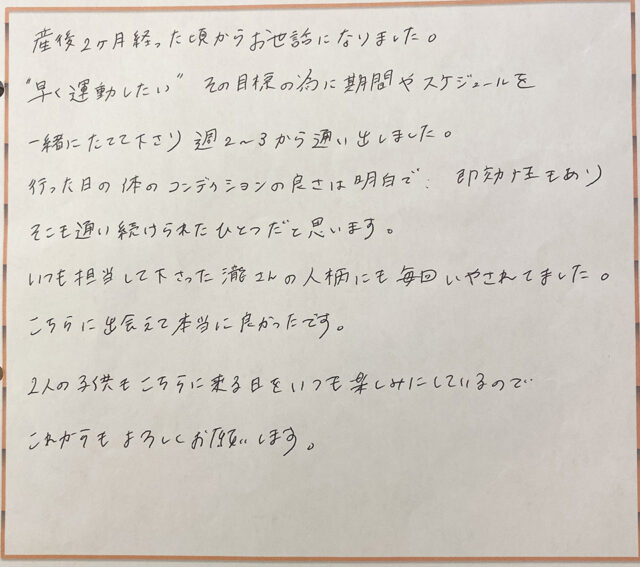 産後2ヶ月経った頃からお世話になりました。
"早く運動したい" その目標の為に期間やスケジュールを
一緒にたてて下さり 週2〜3から通い出しました。
行った日の体のコンディションの良さは明白で、即効性もあり
そこも通い続けられたひとつだと思います。
いつも担当して下さった瀧さんの人柄にも毎回いやされてました。
こちらに出会えて本当に良かったです。
2人の子供もこちらに来る日をいつも楽しみにしているので
これからもよろしくお願いします。